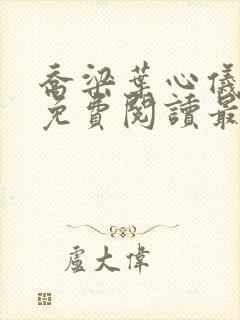 喬梁葉心儀
免費閱讀最
盧大偉